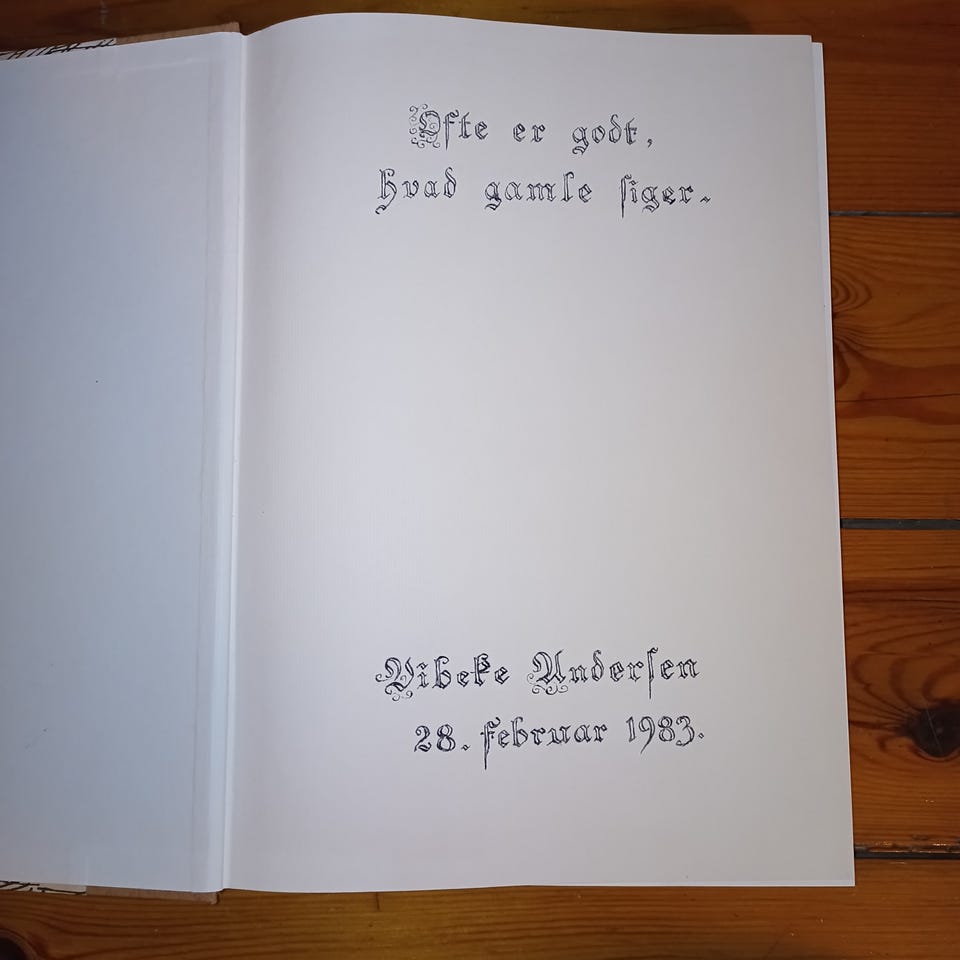 Ofte er godt,
hvad gamle siger.
Vibeke Andersen
28. februar 1983.